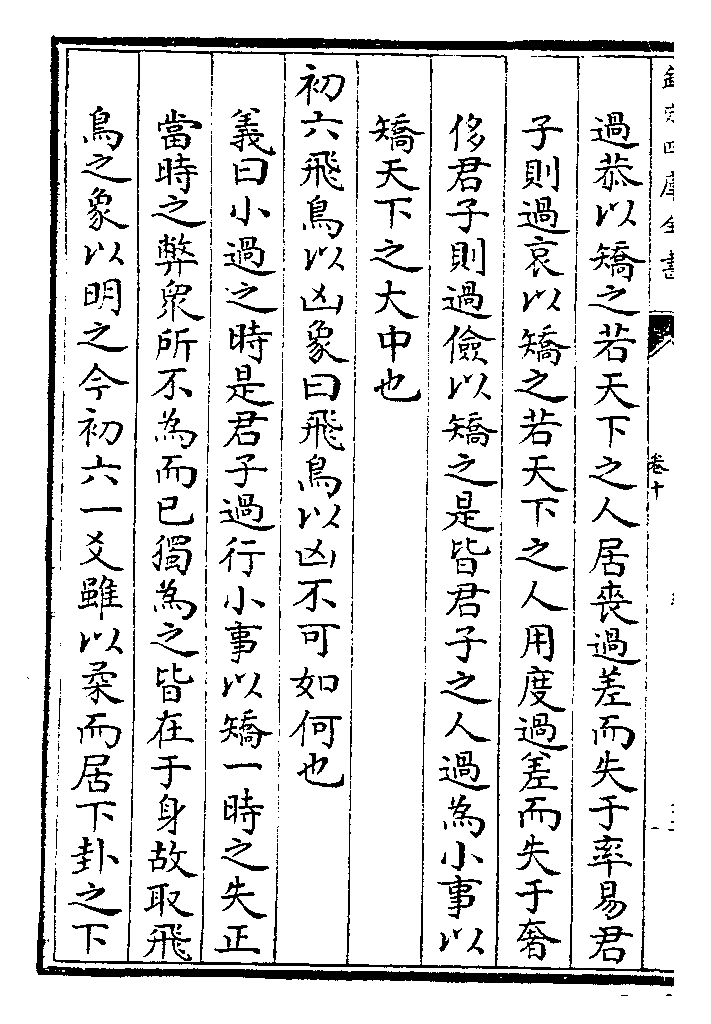 欽定四庫全書
卷十
過恭以矯之若天下之人居喪過差而失于率易君
子則過哀以矯之若天下之人用度過差而失于奢
侈君子則過儉以矯之是皆君子之人過為小事以
矯天下之大中也
初六飛鳥以凶象曰飛鳥以凶不可如何也
義曰小過之時是君子過行小事以矯一時之失正
當時之弊衆所不為而已獨為之皆在于身故取飛
鳥之象以明之今初六一爻雖以柔而居下卦之下